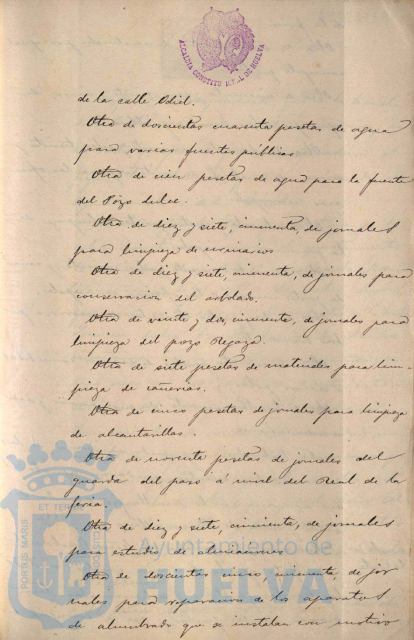 ALCALDIA CONSTITUCIONAL DE HUELVA
de la calle Odiel.
Otra de doscientas cuarenta pesetas de agua
para varias fuentes públicas
Otra de cien pesetas de agua para la fuente
del Pozo dulce.
Otra de diez y siete, cincuenta, de jornales
para limpieza de urinarios
Otra de diez y siete, cincuenta, de jornales para
conservacion del arbolado.
Otra de veinte y dos, cincuenta, de jornales para
limpieza del pozo
Otra de siete pesetas de materiales para lim-
pieza de cañerias.
Otra de cinco pesetas de jornales para limpieza
de alcantarillas.
Otra de noventa pesetas de jornales del
guarda del paso á nivel del Real de la
feria.
Otra de diez y siete, cincuenta, de jornales
para estudio de
Otra de doscientas cinco, cincuenta, de jor
nales para reparacion de los aparatos
de alumbrado que se instalan con motivo
PORTUS MARIS
ET TER
Ayuntamiento de
HUELVA